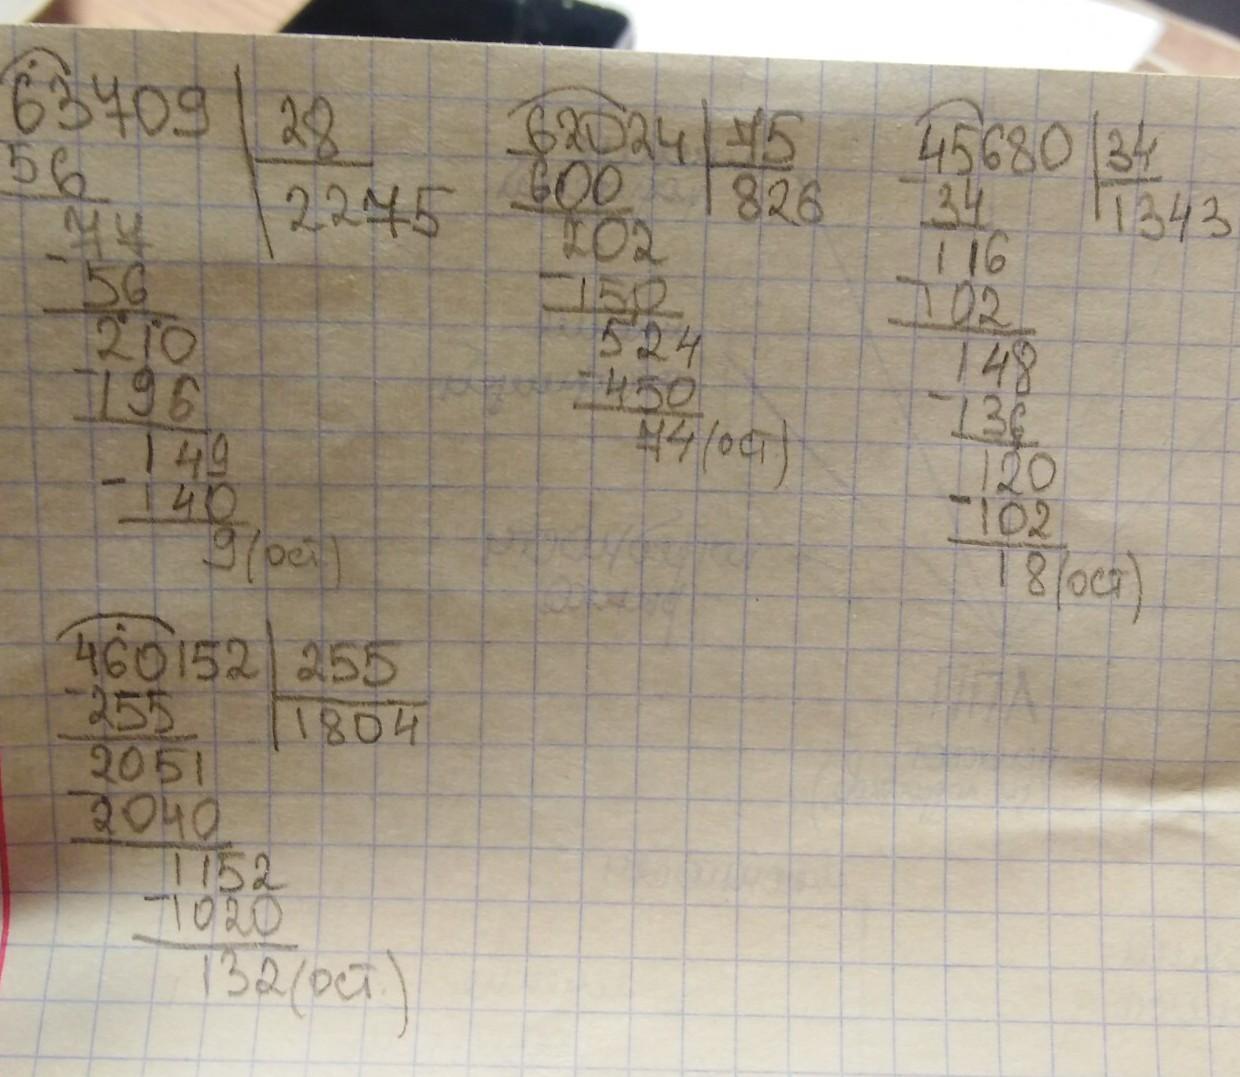 63709 28
56 2275
77
56
210
196
149
140
9(ост)
62024 75
600 826
202
150
524
450
74(ост.)
45680 34
34 1343
116
102
148
136
120
102
18(ост)
460152 255
255 1804
2051
2040
1152
1020
132(ост.)